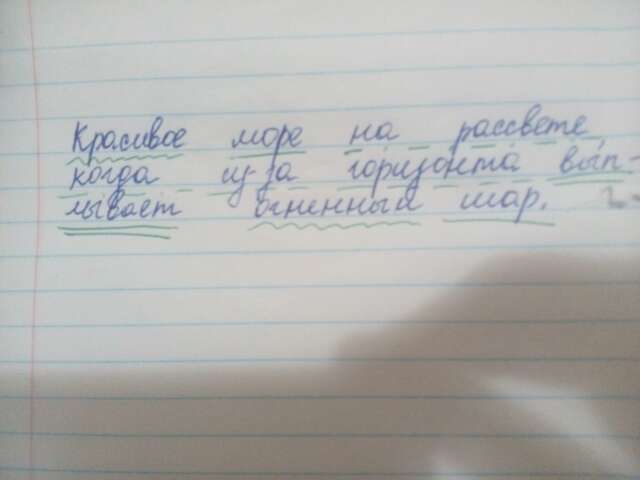 Красивое море на рассвете
когда из-за горизонта вып-
лывает огненный шар.